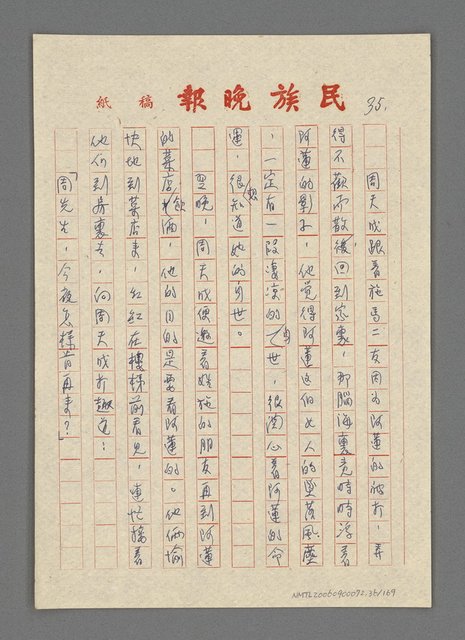 民族晚報 稿紙
35.
周天成跟着施馬二友因为阿蓮的被打，弄
得不歡而散後，回到家裏，那腦海裏竟時時浮着
阿蓮的影子，他覺得阿蓮这個女人的墜落風塵
，一定有一段淒涼的身世，很関心着阿蓮的命
運，很想知道她的身世。
翌晚，周天成便邀着姓施的朋友再到阿蓮
的菜店飲酒，他的目的是要看阿蓮的。他倆愉
快地到菜店来，紅紅在樓梯前看見，連忙騰着
他们到房裏去，向周天成打趣道：
「周先生，今夜怎樣肯再来？」
NMTL20060900072.36/169